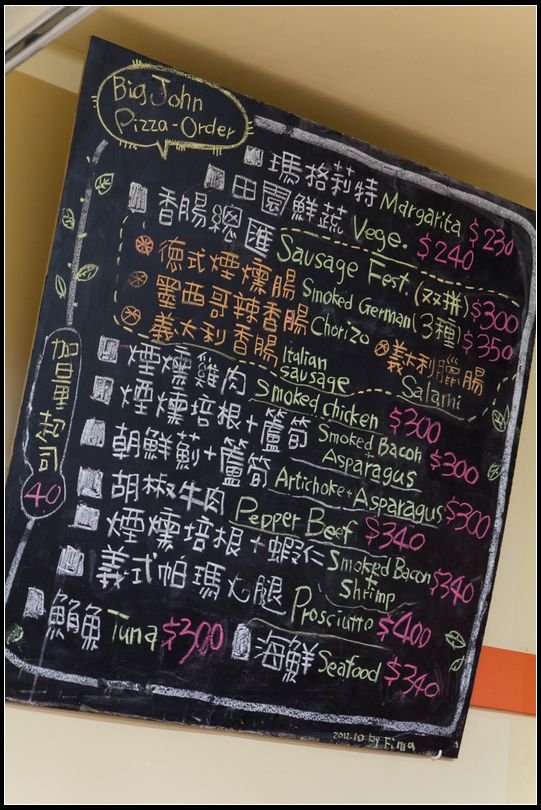 Big John
Pizza-Order
瑪格莉特 Margarita $230
田園鮮蔬 Vege. $240
香腸總匯 Sausage Fest. (双拼) $300
(3種) $350
德式煙燻腸 Smoked German
墨西哥辣香腸 Chorizo
義大利臘腸 Salami
義大利香腸 Italian sausage
煙燻雞肉 smoked chicken $300
煙燻培根+蘆筍 Smoked Bacon + Asparagus $300
朝鮮薊+蘆筍 Artichoke + Asparagus $300
胡椒牛肉 Pepper Beef $340
煙燻培根+蝦仁 Smoked Bacon + Shrimp $340
義式帕瑪火腿 Prosciutto $400
鮪魚 Tuna $300
海鮮 Seafood $340
加量起司 40
2012.10 by Fima